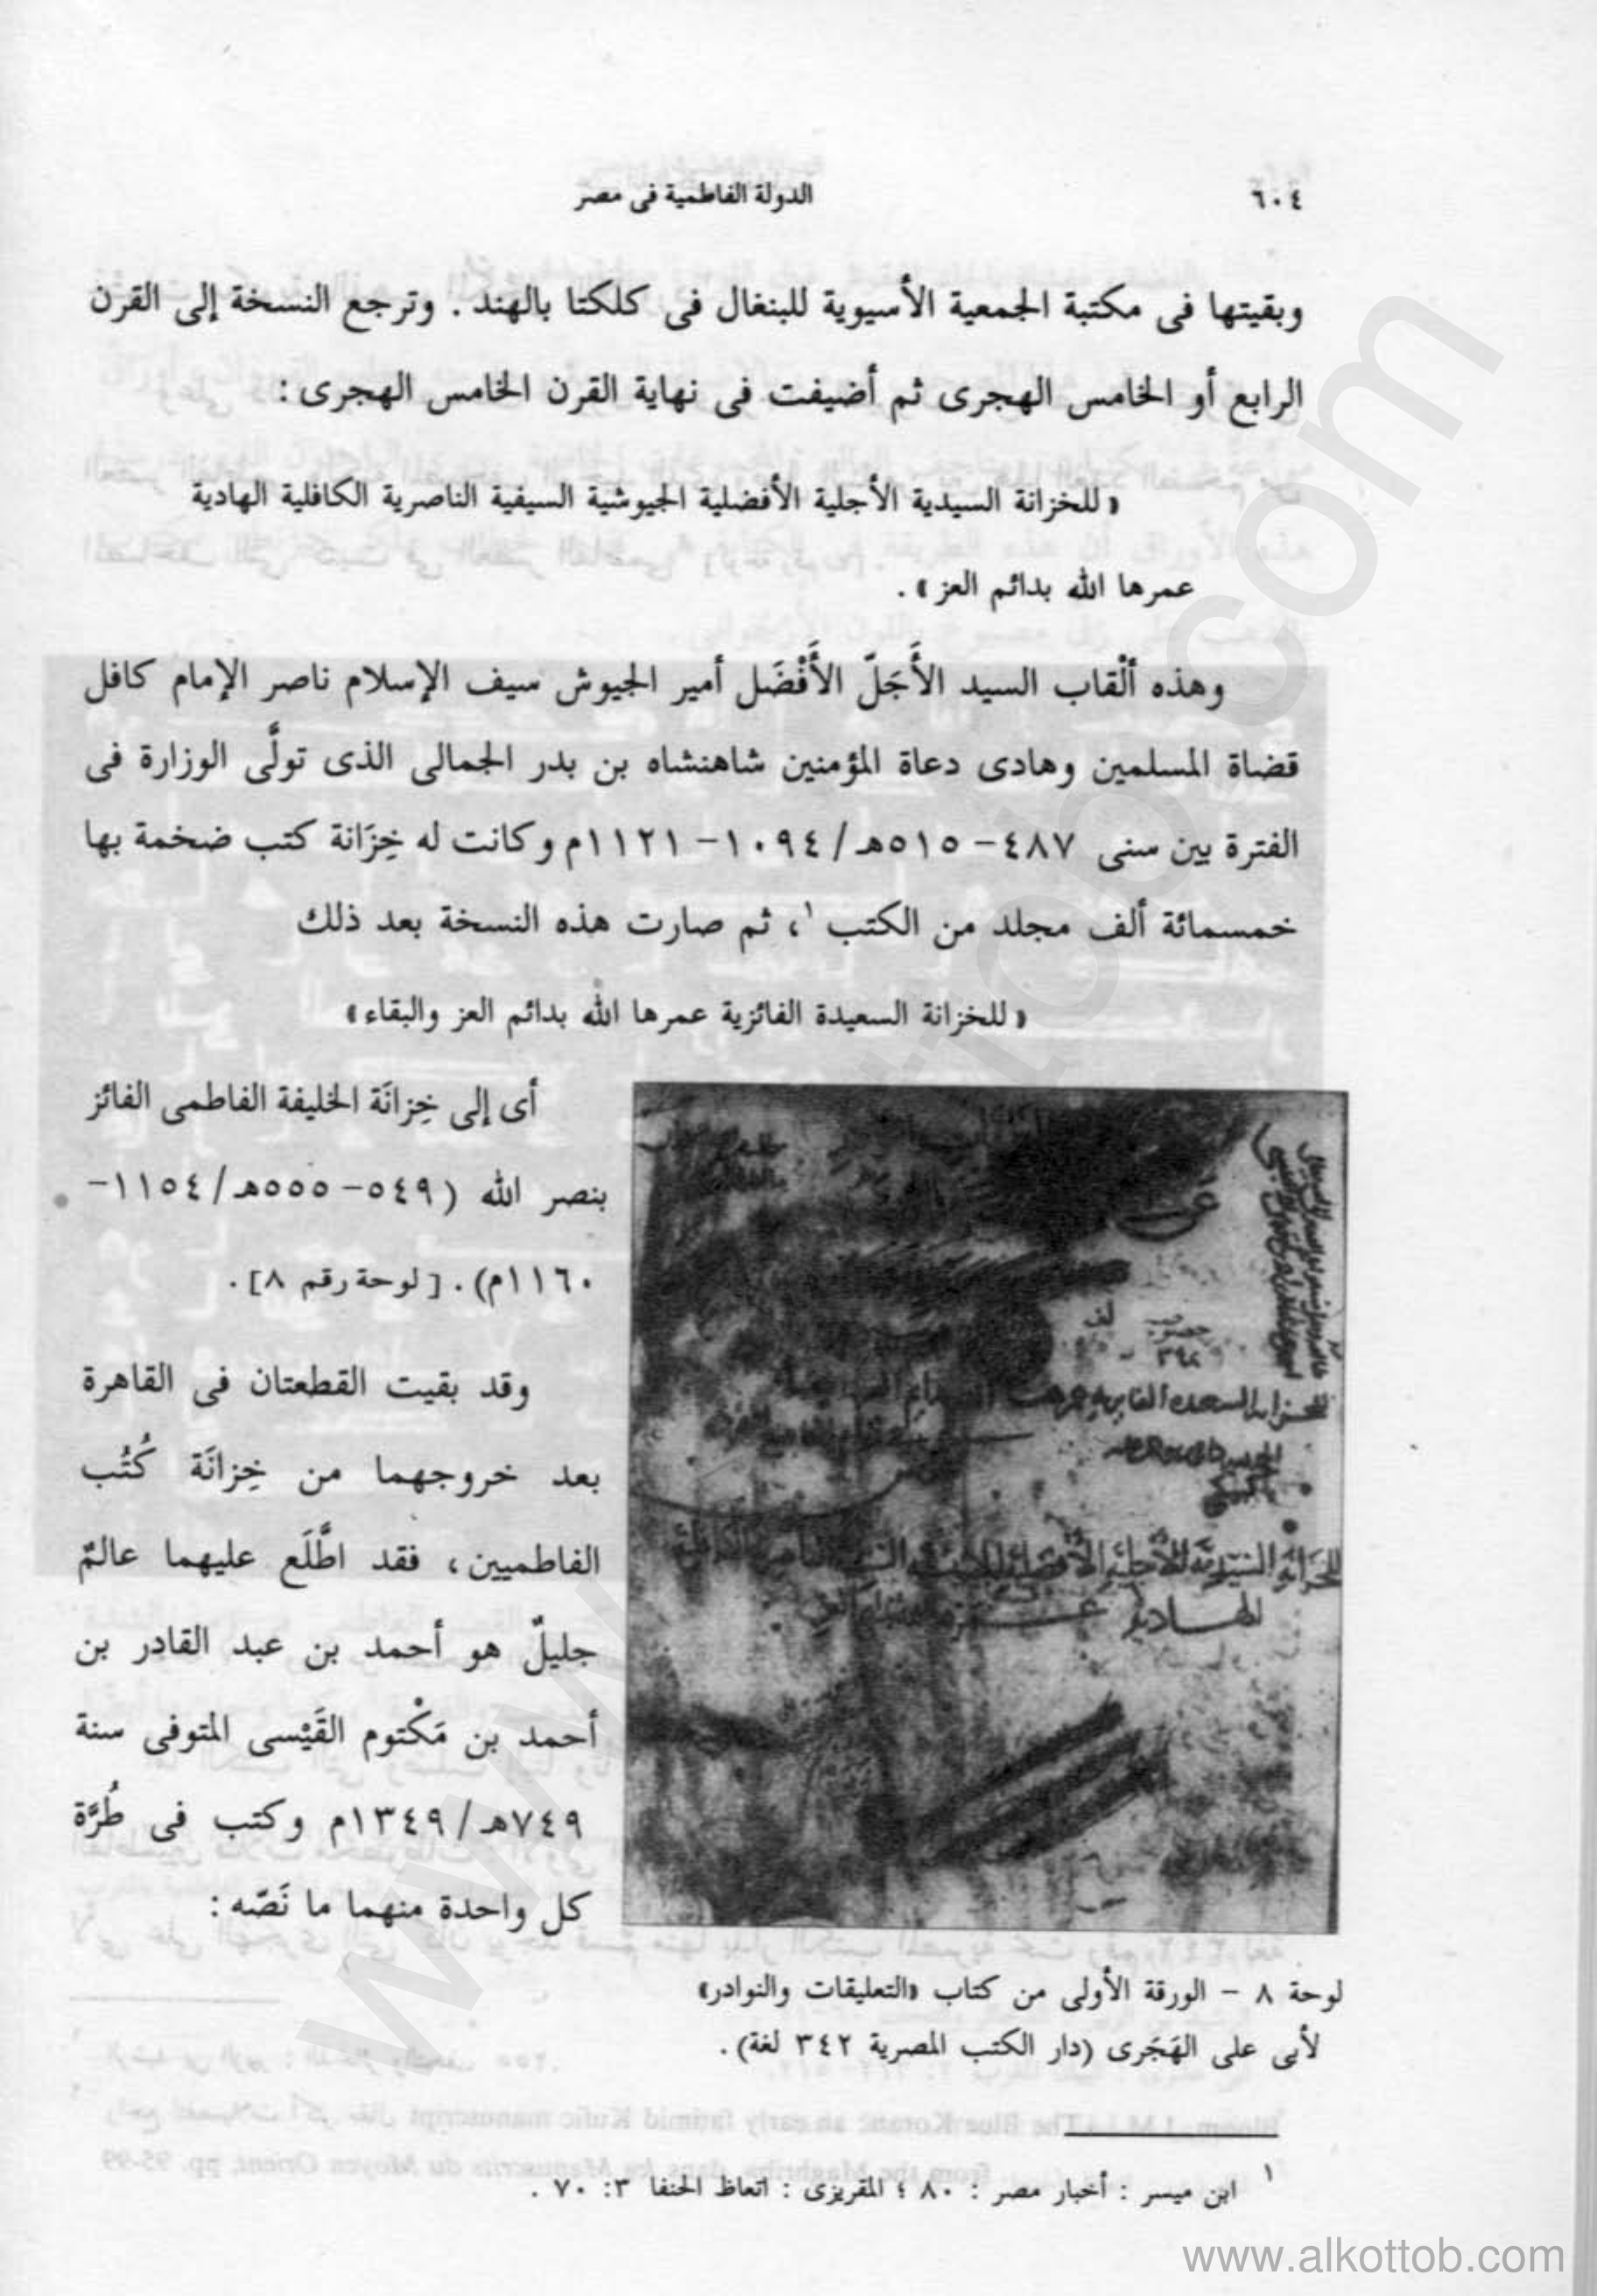 ٦٠٤
الدولة الفاطمية فى مصر
وبقيتها فى مكتبة الجمعية الأسيوية للبنغال فى كلكتا بالهند . وترجع النسخة إلى القرن
الرابع أو الخامس الهجرى ثم أضيفت فى نهاية القرن الخامس الهجرى :
« للخزانة السيدية الأجلية الأفضلية الجيوشية السيفية الناصرية الكافلية الهادية
عمرها الله بدائم العز » .
وهذه ألْقاب السيد الأَجَلّ الأَفْضَل أمير الجيوش سيف الإسلام ناصر الإمام كافل
قضاة المسلمين وهادى دعاة المؤمنين شاهنشاه بن بدر الجمالى الذى تولَّى الوزارة فى
الفترة بين سنى ٤٨٧- ٥١٥هـ/ ١٠٩٤- ١١٢١م وكانت له خِزَانة كتب ضخمة بها
خمسمائة ألف مجلد من الكتب ١، ثم صارت هذه النسخة بعد ذلك
« للخزانة السعيدة الفائزية عمرها الله بدائم العز والبقاء »
أى إلى خِزانَة الخليفة الفاطمى الفائز
بنصر الله (٥٤٩- ٥٥٥هـ/ ١١٥٤-
١١٦٠م) . [ لوحة رقم ٨] .
وقد بقيت القطعتان فى القاهرة
بعد خروجهما من خِزانَة كُتُب
الفاطميين ، فقد اطَّلَع عليهما عالمٌ
جليلٌ هو أحمد بن عبد القادر بن
أحمد بن مَكْتوم القَيْسى المتوفى سنة
٧٤٩هـ/ ١٣٤٩م وكتب فى طُرَّة
كل واحدة منهما ما نَصّه :
للخزانة السعيدة الفايزية عمرها
للخزانة السيدية الأجلية الأفضلية
الهادية
لوحة ٨ - الورقة الأولى من كتاب «التعليقات والنوادر»
لأبى على الهَجَرى (دار الكتب المصرية ٣٤٢ لغة) .
١ ابن ميسر : أخبار مصر : ٨٠ ؛ المقريزى : اتعاظ الحنفا ٣: ٧٠ .
www.alkottob.com
www.alkottob.com